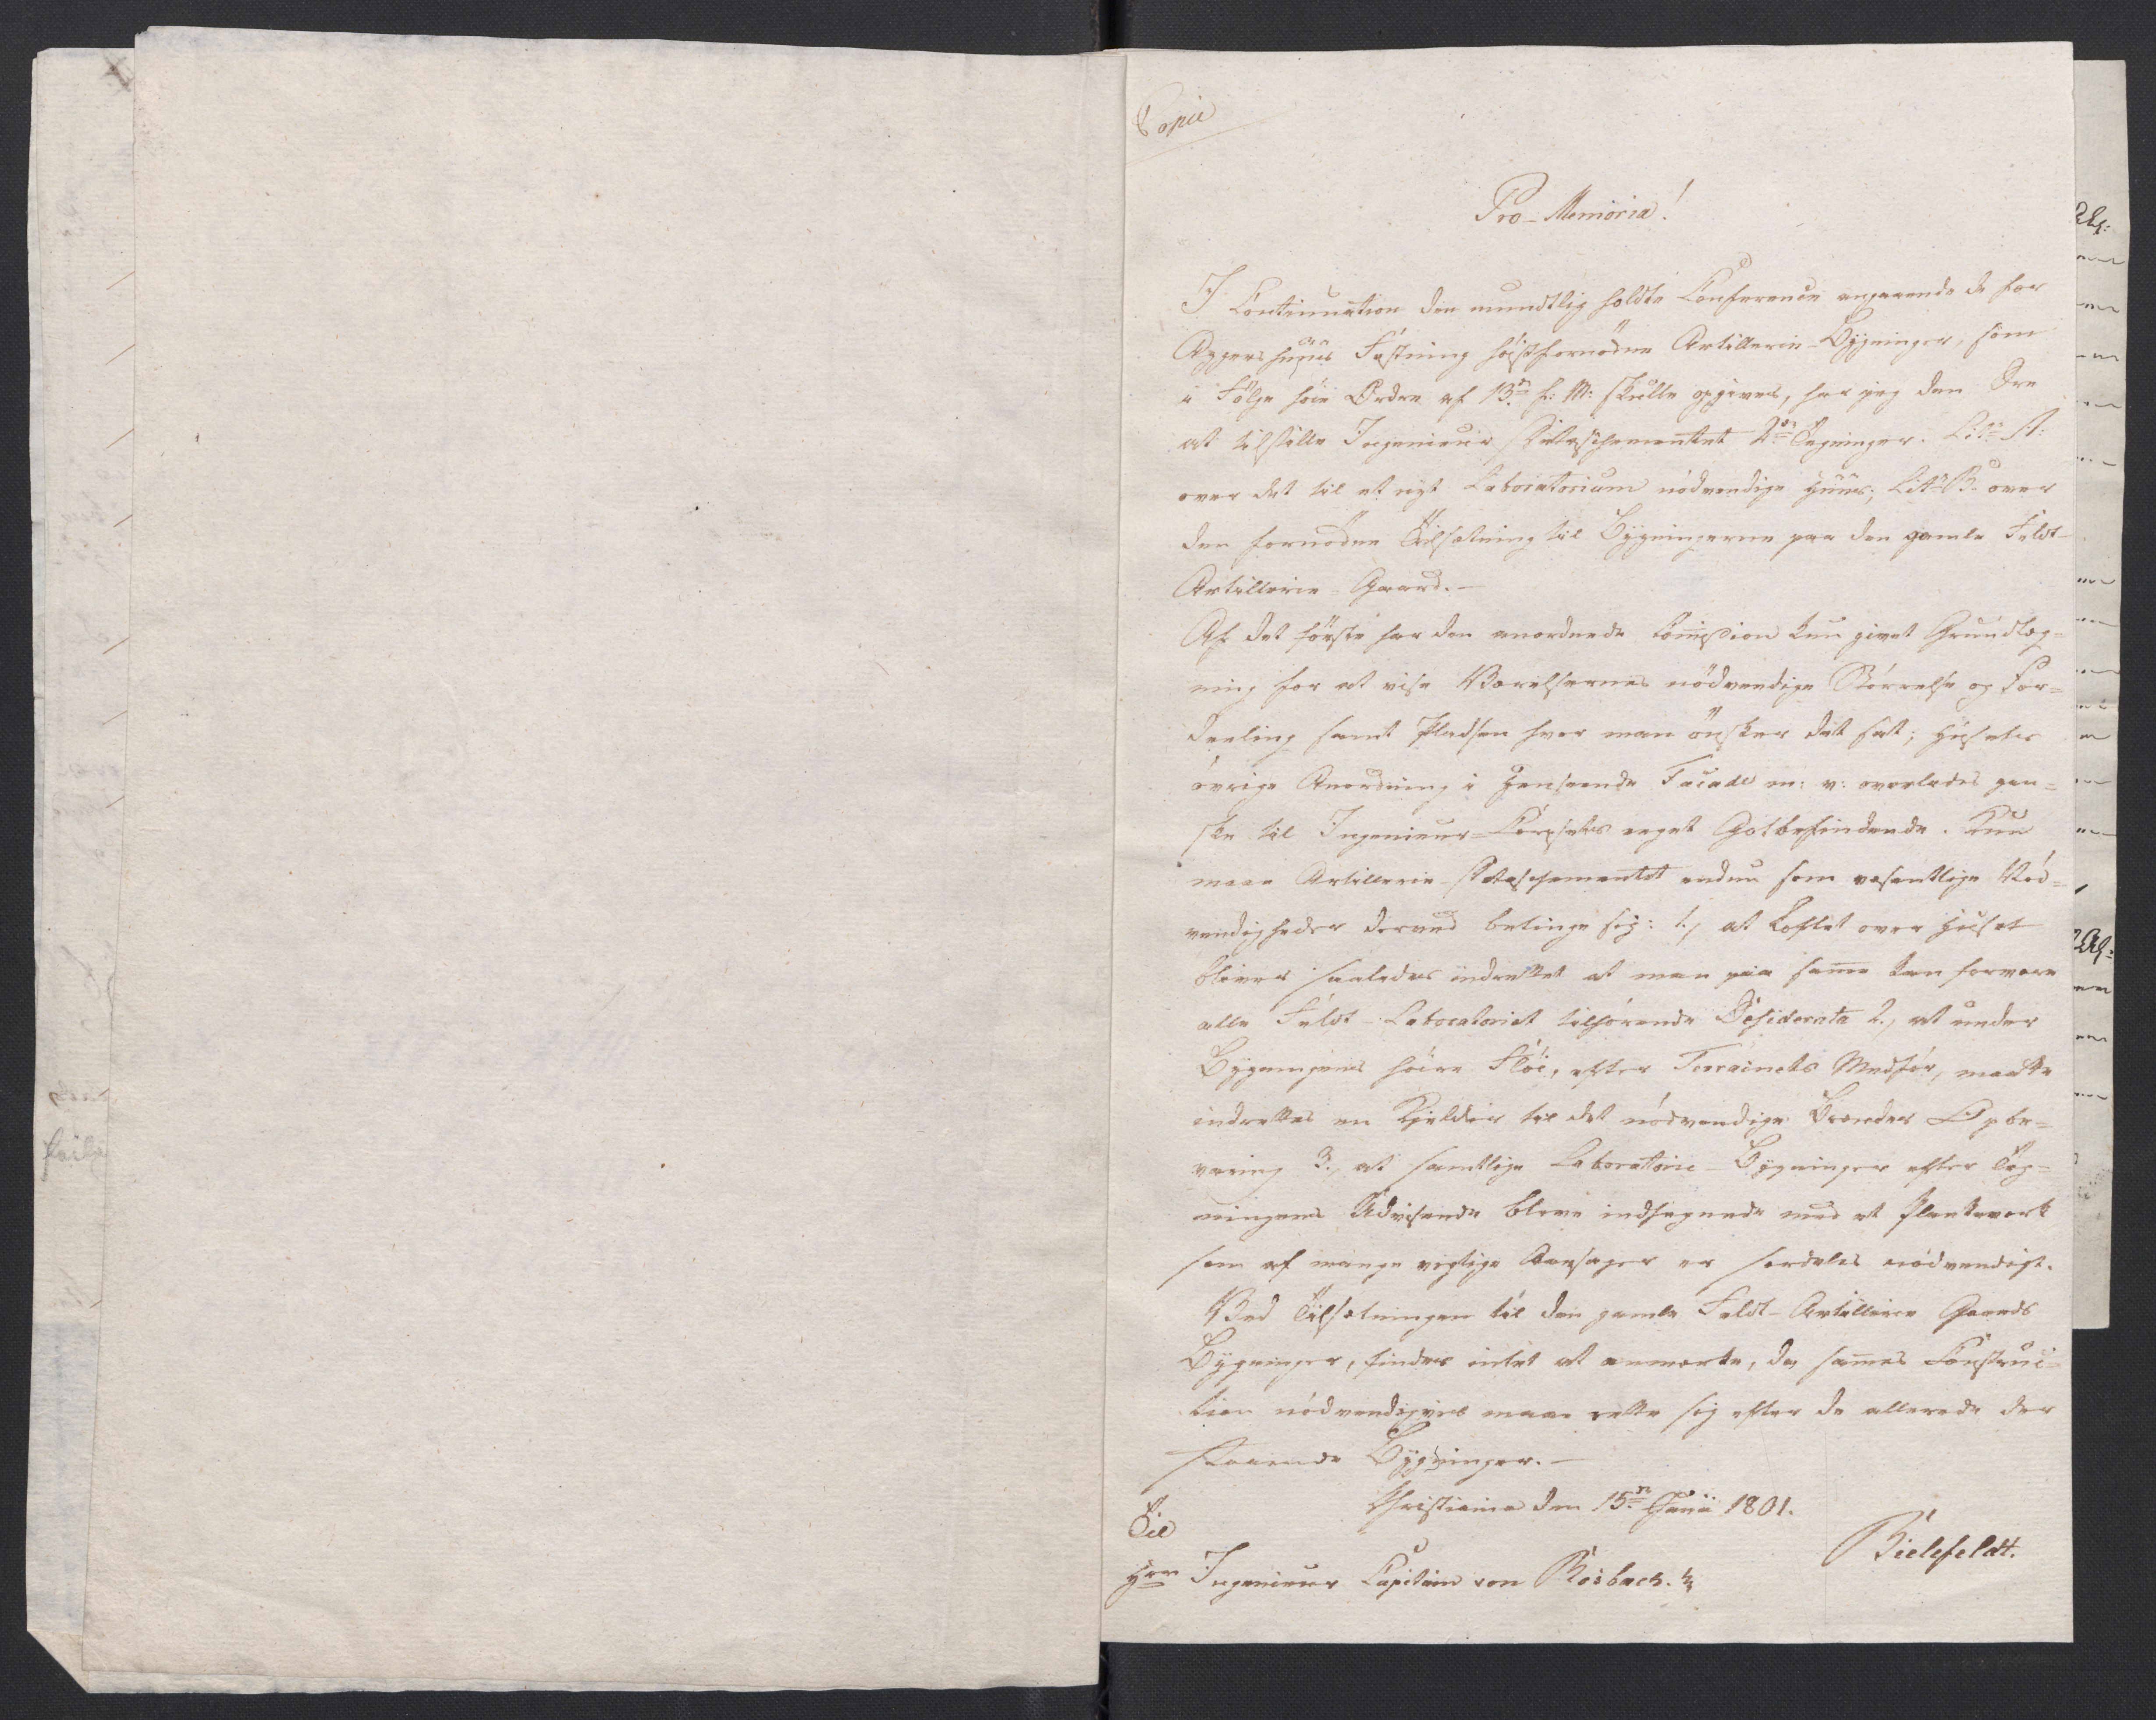 Copie
Pro-Memoria!
I Continuation den mundtlig holdte Conference angaaende de for
Aggershuus Fæstning høistfornødne Artillerie-Bygninger, som
i Følge høie Ordre af 13de f: M: skulle opgives, har jeg den Ære
at tilstille Ingenieur Detaschementet 2de Tegninger. Litr A:
over det til et nyt Laboratorium nødvendige Huus; Litr B. over
den fornødne Tilsætning til Bygningerne paa den gamle Feldt-
Artillerie-Gaard.-
Af det første har den anordnede Commission kun givet Grundlæg=
ning for at vise Værelsernes nødvendige Størrelse og For=
deeling samt Pladsen hvor man ønsker det sat; Husets
øvrige Anordning i Henseende Facade m: v: overlades gan=
ske til Ingenieur-Corpsets eget Gotbefindende. Kun
maae Artillerie-Detaschementet endnu som væsentlige Nød=
vendigheder derved betinge sig: 1., at Loftet over Huset
bliver saaledes indrettet at man paa samme kan forvare
alle Feldt-Laboratoriet tilhørende Desiderata 2., at under
Bygningens høire Fløi, efter Terrainets Medfør, maatte
indrettes en Kjelder til det nødvendige Brændes Opbe=
varing 3., at samtlige Laboratorie-Bygninger efter Teg=
ningens Udvisende bleve indhegnede med et Plankeværk
som af mange vigtige Aarsager er særdeles nødvendigt.
Ved Tilsætningen til den gamle Feldt-Artillerie Gaards
Bygninger, findes intet at anmærke, da sammes Construc-
tion nødvendigviis maae rette sig efter de allerede der
staaende Bygninger.-
Christiania den 15de Junii 1801.
Bielefeldt.
Til
Hrr Ingenieur Capitain von Rosbach.